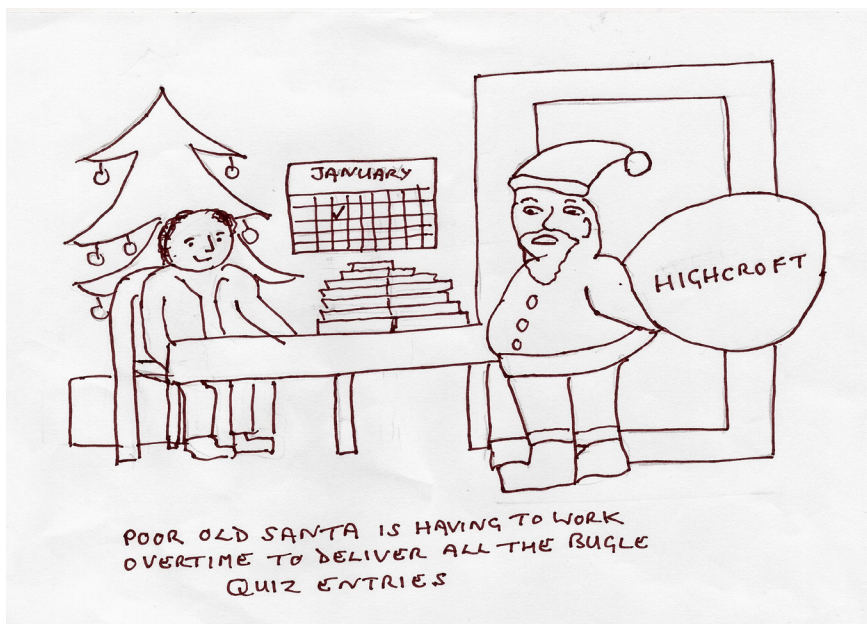 JANUARY
HIGHCROFT
POOR OLD SANTA IS HAVING TO WORK
OVERTIME TO DELIVER ALL THE BUGLE
QUIZ ENTRIES